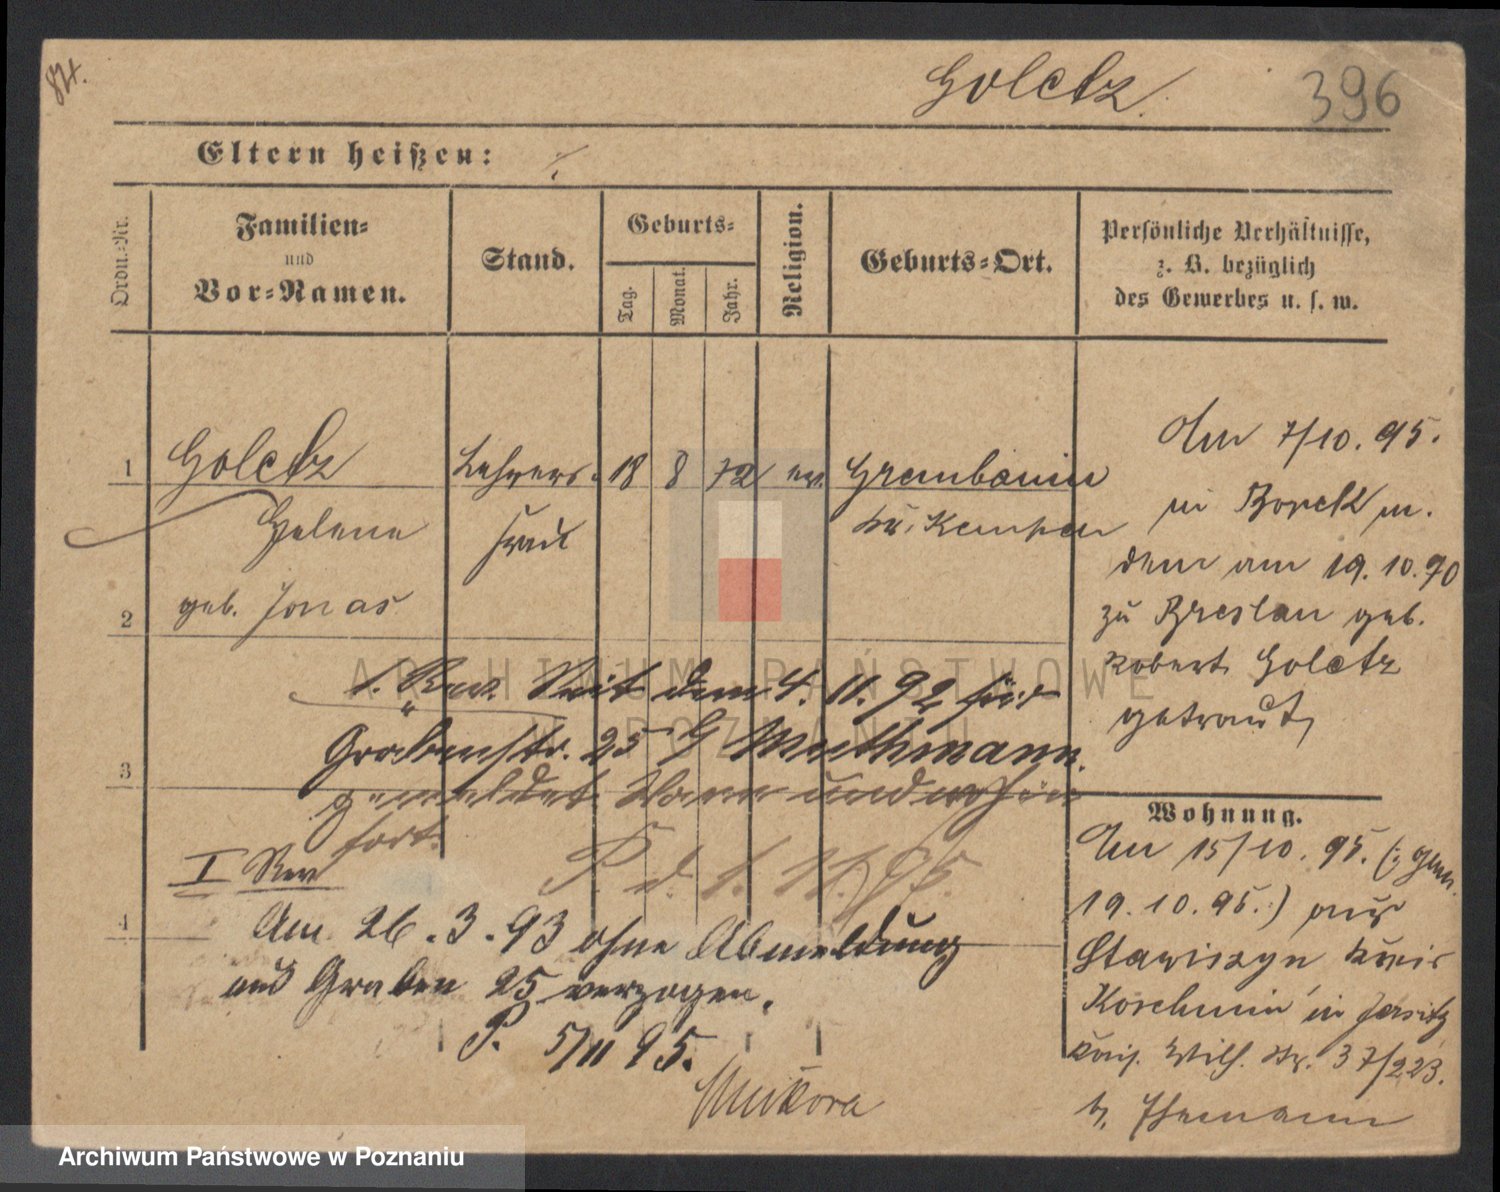 84.
Goletz
396
Eltern heißen: ./.
Ordn.-Nr.
Familien-
und
Vor-Namen.
Stand.
Geburts-
Tag.
Monat.
Jahr.
Religion.
Geburts-Ort.
Persönliche Verhältnisse,
z. B. bezüglich
des Gewerbes u. s. w.
1
Goletz
Helene
geb. Jonas
Lehrers-
frau
18
8
72
ev.
Grembanin
Kr. Kempen
2
3
4
Am 7/10. 95.
in Borek m.
dem am 19. 10. 70
zu Breslau geb.
Robert Goletz
getraut,
I. Rev. Seit dem 4. 11. 92 hier
Grabenstr. 25 b/ Muthmann
gemeldet. Wann und wohin
fort.
P. d. 1. 11. 95.
I Rev
Am 26. 3. 93 ohne Abmeldung
aus Graben 25 verzogen.
P. 5/11 95.
Wohnung.
Am 15/10. 95. (: gem.
19. 10. 95. :) aus
Stawiszyn, Kreis
Koschmin in Jersitz
Kais. Wilh. Str. 37/223.
b,
ARCHIWUM PAŃSTWOWE
W POZNANIU
Archiwum Państwowe w Poznaniu